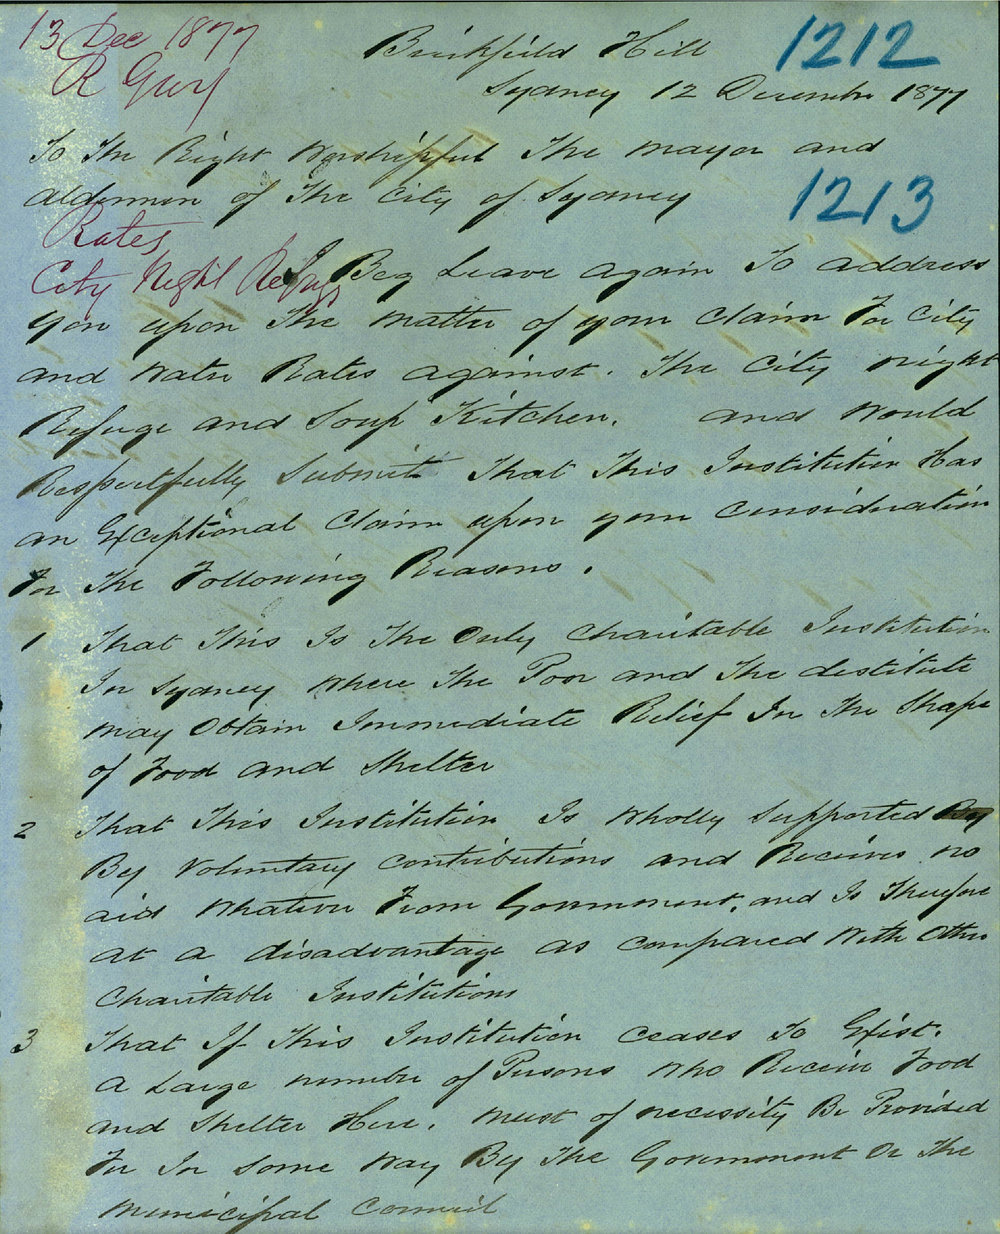 13 Dec 1877
R
Brickfield Hill
1212
Sydney 12 December 1877
To The Right Worshipful The Mayor and
Aldermen of The City of Sydney
1213
Rates
City Night Refuge
I Beg Leave again To address
you upon The matter of your Claim For City
and Water Rates against. The City Night
Refuge and Soup Kitchen. and Would
Respectfully Submit That This Institution Has
an Exceptional Claim upon your Consideration
For The Following Reasons.
1 That This Is The Only Charitable Institution
In Sydney Where The Poor and The destitute
may Obtain Immediate Relief In The Shape
of Food and Shelter
2 That This Institution Is Wholly Supported By
By Voluntary Contributions and Receives no
aid Whatever From Government, and Is Therefore
at a disadvantage as compared With Other
Charitable Institutions
3 That If This Institution ceases To Exist.
a Large number of Persons Who Receive Food
and Shelter Here. must of necessity Be Provided
For In Some Way By The Government Or The
Municipal Council